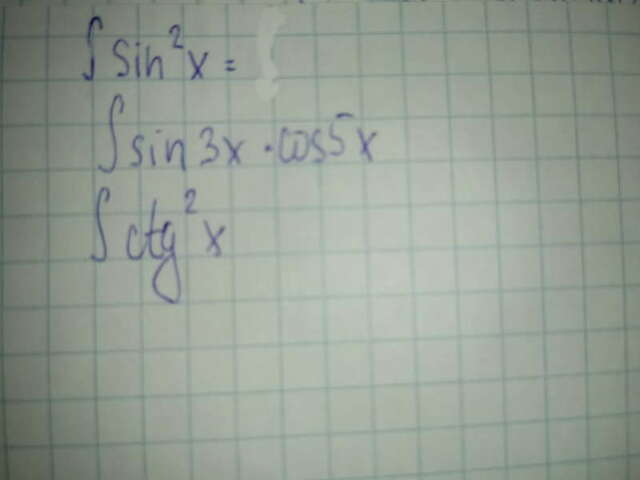 ∫ sin²x =
∫ sin 3x · cos 5x
∫ ctg²x